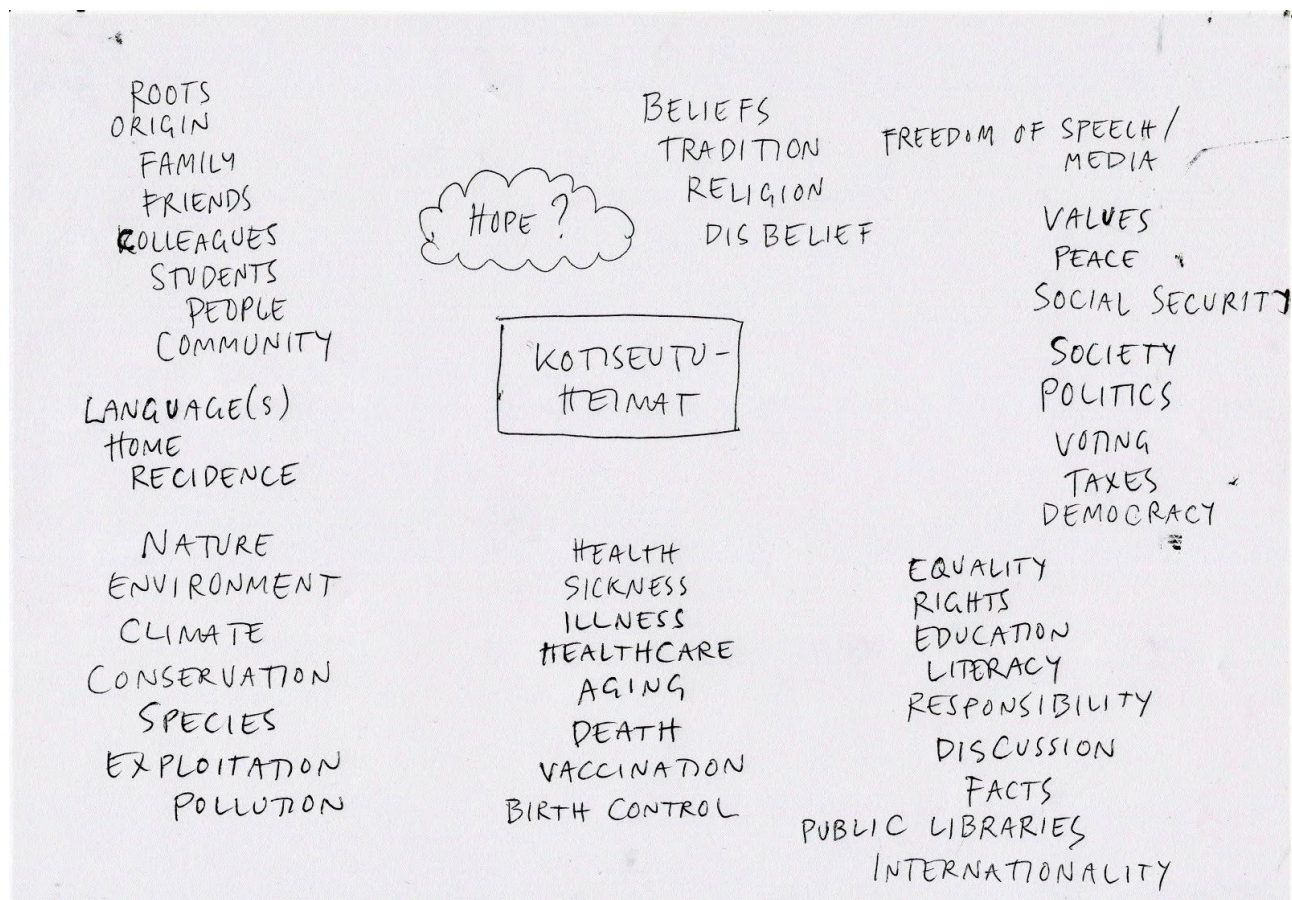 ROOTS
ORIGIN
FAMILY
FRIENDS
COLLEAGUES
STUDENTS
PEOPLE
COMMUNITY
LANGUAGE(S)
HOME
RECIDENCE
NATURE
ENVIRONMENT
CLIMATE
CONSERVATION
SPECIES
EXPLOITATION
POLLUTION
HOPE ?
KOTISEUTU-
HEIMAT
BELIEFS
TRADITION
RELIGION
DISBELIEF
HEALTH
SICKNESS
ILLNESS
HEALTHCARE
AGING
DEATH
VACCINATION
BIRTH CONTROL
FREEDOM OF SPEECH/
MEDIA
VALUES
PEACE
SOCIAL SECURITY
SOCIETY
POLITICS
VOTING
TAXES
DEMOCRACY
EQUALITY
RIGHTS
EDUCATION
LITERACY
RESPONSIBILITY
DISCUSSION
FACTS
PUBLIC LIBRARIES
INTERNATIONALITY